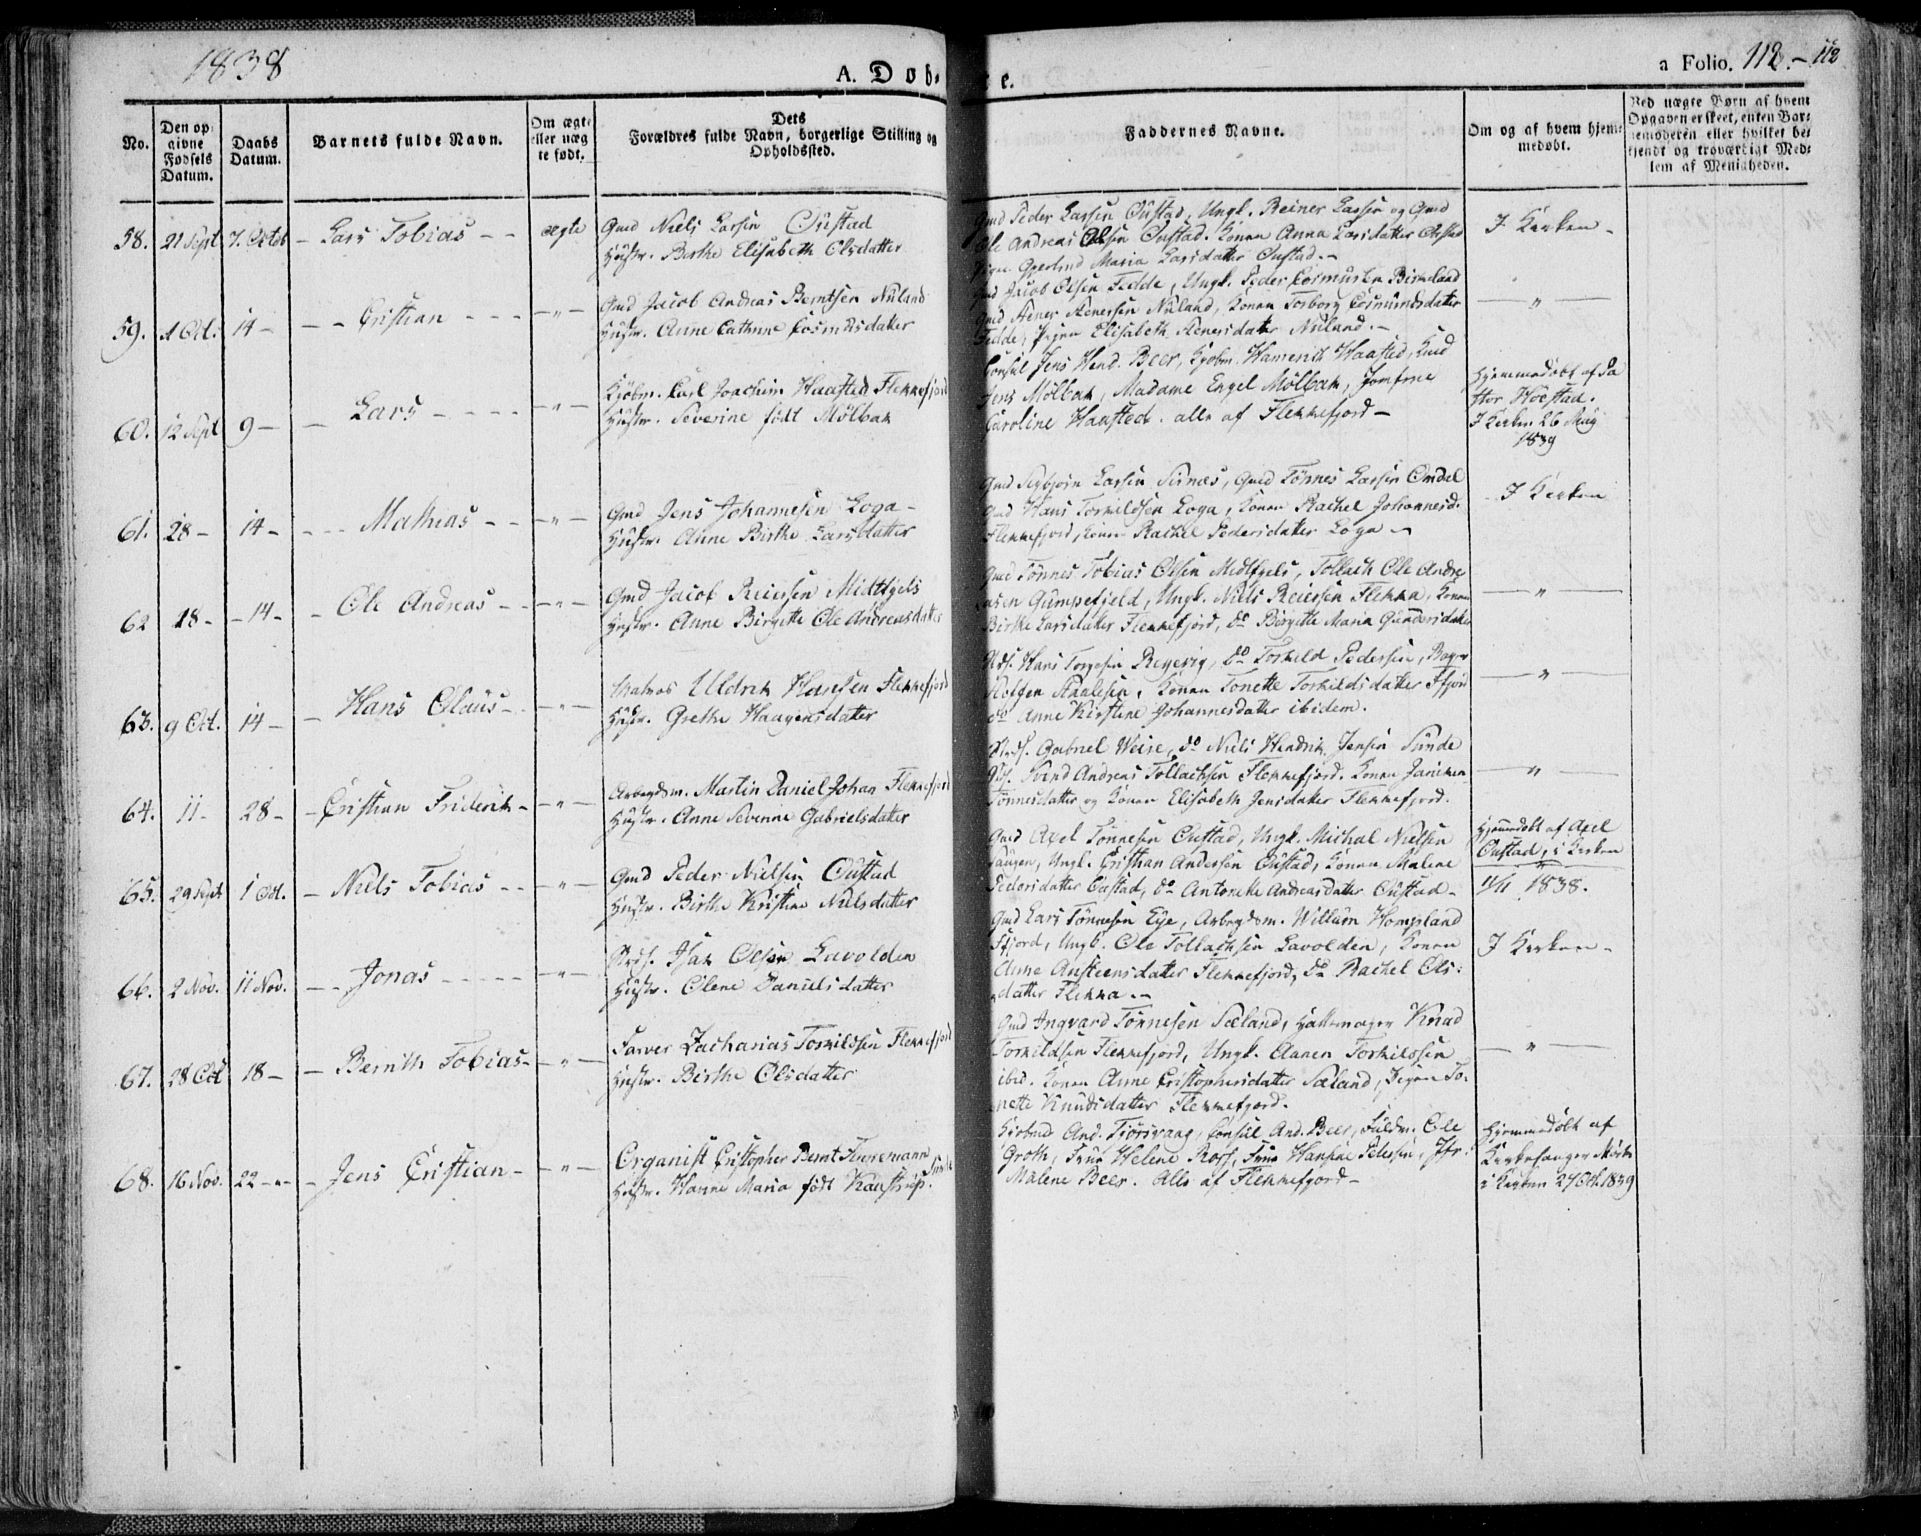 1838
A. Døb-
te.
a Folio. 112.- 112
No.
Den opgivne Fødsels Datum.
Daabs Datum.
Barnets fulde Navn.
Om ægte eller uægte født.
Dets Forældres fulde Navn, borgerlige Stilling og Opholdssted.
Faddernes Navne.
Om og af hvem hjemmedøbt.
Ved uægte Børn af hvem Opgaven er skeet, enten Barnemoderen eller hvilket bekjendt og troværdigt Medlem af Menigheden.
58. 21 Sept 7. Octob - Lars Tobias - - ægte
Gmd Niels Larsen Oustad
Hustr. Birthe Elisabeth Olsdatter
Gmd Peder Larsen Oustad, Ungk. Reiner Larsen og Gmd
Ole Andreas Olsen Oustad. Konen Anna Larsdatter Oustad
Maria Larsdatter Oustad. -
I Kirken -
59. 1 Oct. 14 - - - Cristian - - - - " -
Gmd Jacob Andreas Berntsen Nuland
Hustr. Anne Cathrine Cosmusdatter
Gmd Jacob Olsen Fedde, Ungk. Peder Cosmusen Birkeland
Gmd Asner Asnersen Nuland, Konen Torborg Cosmundsdatter
Fedde, Pigen Elisabeth Asnersdatter Nuland. -
- " -
60. 12 Sept 9 - - Lars - - - - - " -
Kjøbm. Carl Joachim Haasted Flekkefjord
Hustr. Severine født Mølbak
Consul Jens Hend. Beer, Kjøbm. Hamerik Haasted,
Jens Mølbak, Madame Engel Mølbak, Jomfrue
Caroline Haasted. alle af Flekkefjord -
Hjemmedøbt af Pa
stor Høestad.
I Kirken 26 Maij
1839
61. 28 - 14 - - - - Mathias - - - " -
Gmd Jens Johannesen Loga -
Hustr. Anne Birthe Larsdatter
Gmd Sigbjørn Larsen Sirnæs, Gmd Tønnes Larsen Omdal
Gmd Hans Torkildsen Loga, Konen Rachel Johannesd.
Flekkefjord, Konen Rachel Pedersdatter Loga -
I Kirken
62 18 - - 14 - - Ole Andreas - - - " -
Gmd Jacob Reiersen Midtfgels
Hustr. Anne Birgitte Ole Andreasdatter
Gmd Tønnes Tobias Olsen Midtfgels, Tollach Ole Andre
asen Gumpefjeld, Ungk. Niels Reiersen Flekke, Konen
Birthe Larsdatter Flekkefjord, do Birgitte Maria Gundersdatter
- " -
63. 9 Oct. 14 - - Hans Olaüs - - " -
Matros Uldrik Hansen Flekkefjord
Hustr. Grethe Haagensdatter
Hans Torgesen Regevig, do Torkeld Pedersen, Bager
Steffen Aanlesen, Konen Tonette Torkildsdatter Ffjord
do Anne Kirstine Johannesdatter ibidem.
- " -
64. 11 - 28 - - Cristian Friderik - - " -
Arbeydsm. Martin Daniel Johan Flekkefjord
Hustr. Anne Severine Gabrielsdatter
Gabriel Weise, do Niels Hendrik Jensen Sunde
Svend Andreas Tollachsen Flekkefjord. Konen Janiken
Tønnesdatter og Konen Elisabeth Jensdatter Flekkefjord.
- " -
65. 29 Sept 1 Oct. - Niels Tobias - - - " -
Gmd Peder Nielsen Oustad
Hustr. Birthe Kristine Nielsdatter
Gmd Axel Tønnesen Oustad, Ungk. Michal Nielsen
Haugen, Ungk. Cristian Andersen Oustad, Konen Malene
Pedersdatter Oustad, do Antonette Andreasdatter Oustad -
Hjemmedøbt af Axel
Oustad, i Kirken
11/11 1838.
66. 2 Nov. 11 Nov. - - Jonas - - - - - " -
Isak Olsen Lavolden
Hustr. Olene Danielsdatter
Gmd Lars Tønnesen Eye, Arbeydsm. Willum Hompland
Ffjord, Ungk. Ole Tollachsen Lavolden, Konen
Anne Austeensdatter Flekkefjord, do Rachel Ols:
datter Flekke. -
I Kirken -
67. 28 Oct 18 - - Bernth Tobias - - " -
Farver Zacharias Torkildsen Flekkefjord
Hustr. Birthe Olsdatter
Gmd Ingvard Tønnesen Sæland, Hattemager Knud
Torkildsen Flekkefjord, Ungk. Aanen Torkildsen
ibid. Konen Anne Cristophersdatter Sæland, Pigen To-
nette Knudsdatter Flekkefjord.
- " -
68. 16 Nov. 22 - - - Jens Cristian - - " -
Organist Cristopher Bernt Thoremann
Hustr. Hanne Maria født Kaastrup. Sunde
And. Tjorsvaag, Consul And. Beer, Fuldm. Ole
Groth, Frue Helene Rosf, Frue Hansine Petersen, Jfr.
Malene Beer. Alle af Flekkefjord -
Hjemmedøbt af
Kirkesanger
i Kirken 27 Oct. 1839